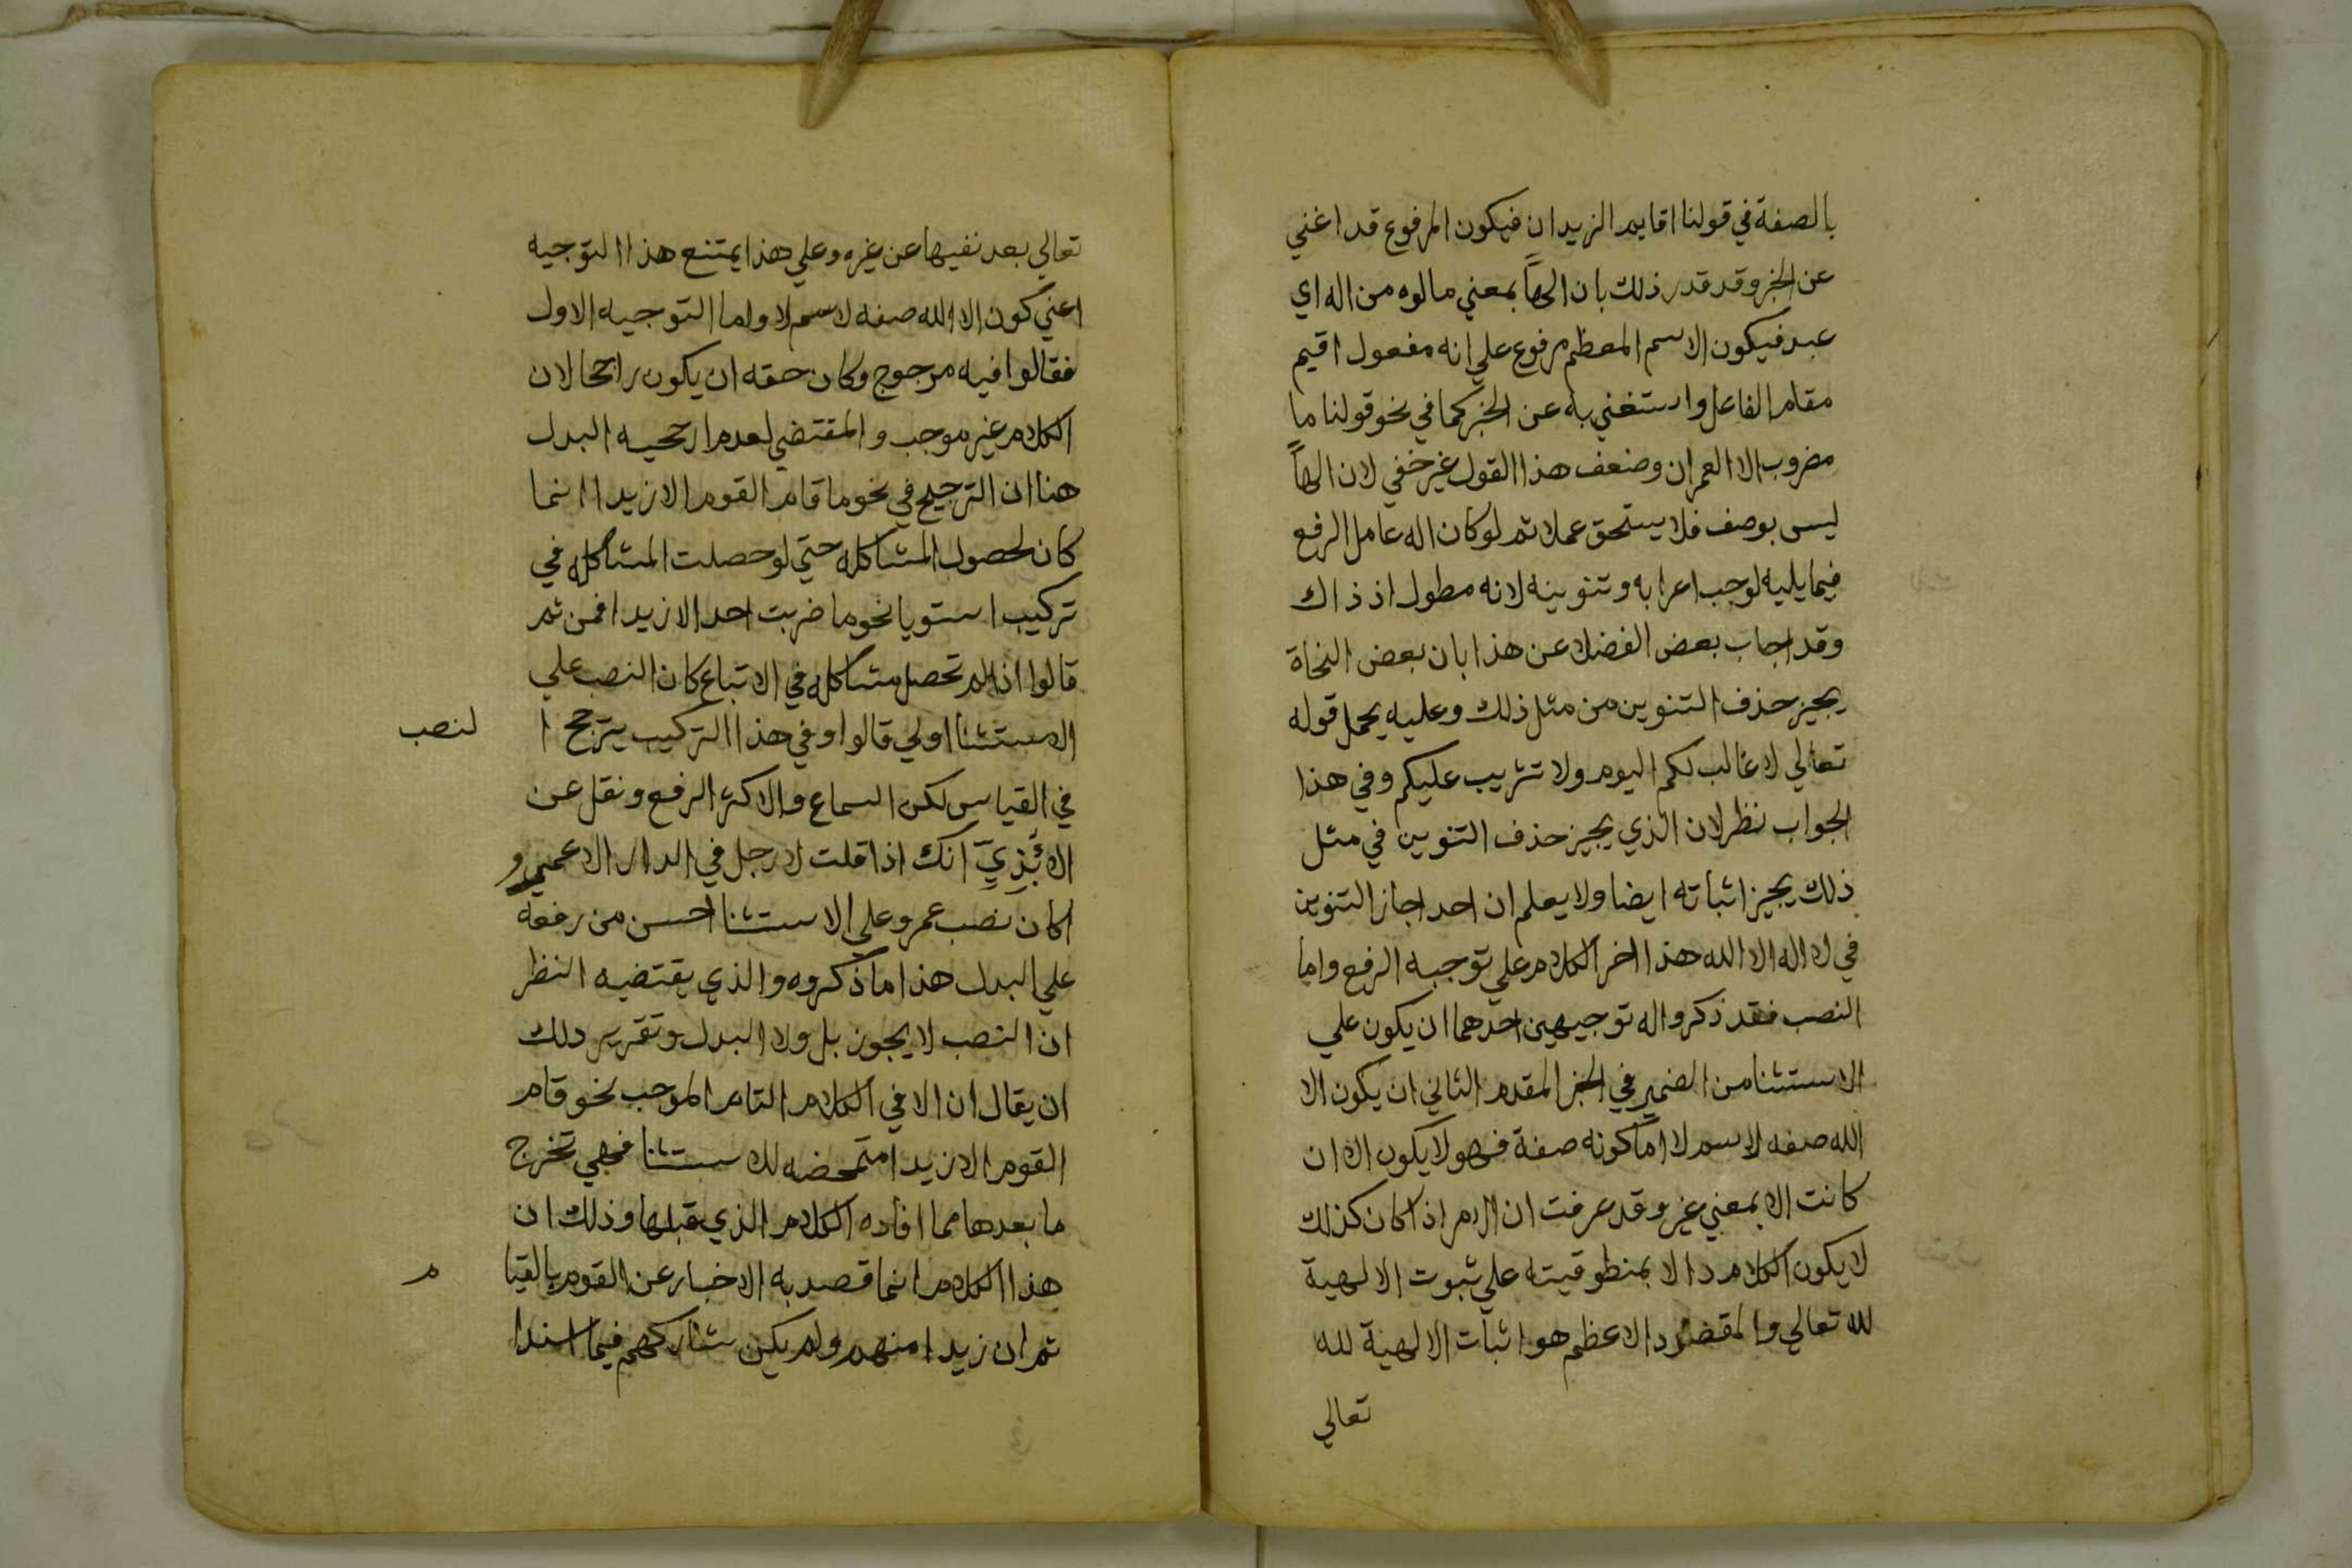 بالصفة في قولنا اقايم الزيدان فيكون المرفوع قد اغني
عن الخبر وقد قدر ذلك بان الهاً بمعني مالوه من اله اي
عبد فيكون الاسم المعظم مرفوع علي انه مفعول اقيم
مقام الفاعل واستغني به عن الخبر كما في نحو قولنا ما
مضروب الا العمران وضعف هذا القول غير خفي لان الهاً
ليس بوصف فلا يستحق عملا ثم لو كان اله عامل الرفع
فيما يليه لوجب اعرابه وتنوينه لانه مطول اذ ذاك
وقد اجاب بعض الفضلا عن هذا بان بعض النحاة
يجيز حذف التنوين من مثل ذلك وعليه يحمل قوله
تعالي لا غالب لكم اليوم ولا تثريب عليكم وفي هذا
الجواب نظر لان الذي يجيز حذف التنوين في مثل
ذلك يجيز اثباته ايضا ولا يعلم ان احد اجاز التنوين
في لا اله الا الله هذا اخر الكلام علي توجيه الرفع واما
النصب فقد ذكروا له توجيهين احدهما ان يكون علي
الاستثنا من الضمير في الخبر المقدر الثاني ان يكون الا
الله صفه لاسم لا اما كونه صفة فهو لا يكون الا ان
كانت الا بمعني غير وقد عرفت ان الامر اذا كان كذلك
لا يكون الكلام دالا بمنطوقيته علي ثبوت الالهية
لله تعالي والمقصود الاعظم هو اثبات الالهية لله
تعالي
تعالي بعد نفيها عن غيره وعلي هذا يمتنع هذا التوجيه
اعني كون الا الله صفه لاسم لا واما التوجيه الاول
فقالوا فيه مرجوح وكان حقه ان يكون راجحا لان
الكلام غير موجب والمقتضي لعدم ارجحيه البدل
هنا ان الترجيح في نحو ما قام القوم الا زيدا انما
كان لحصول المشاكله حتي لو حصلت المشاكله في
تركيب استويا نحو ما ضربت احد الا زيدا فمن ثم
قالوا اذا لم تحصل مشاكله في الاتباع كان النصب علي
الاستثنا اولي قالوا وفي هذا التركيب يترجح ا لنصب
في القياس لكن السماع والاكثر الرفع ونقل عن
الابَّذِيِّ انك اذا قلت لا رجل في الدار الا عمرو
اكان نصب عمرو علي الاستثنا احسن من رفعه
علي البدل هذا ما ذكروه والذي يقتضيه النظر
ان النصب لا يجوز بل ولا البدل وتقرير دلك
ان يقال ان الا في الكلام التام الموجب نحو قام
القوم الا زيدا متمحضه للاستثنا فهي تخرج
ما بعدها مما افاده الكلام الذي قبلها وذلك ان
هذا الكلام انما قصد به الاخبار عن القوم بالقيا م
ثم ان زيدا منهم ولم يكن شاركهم فيما اسندا